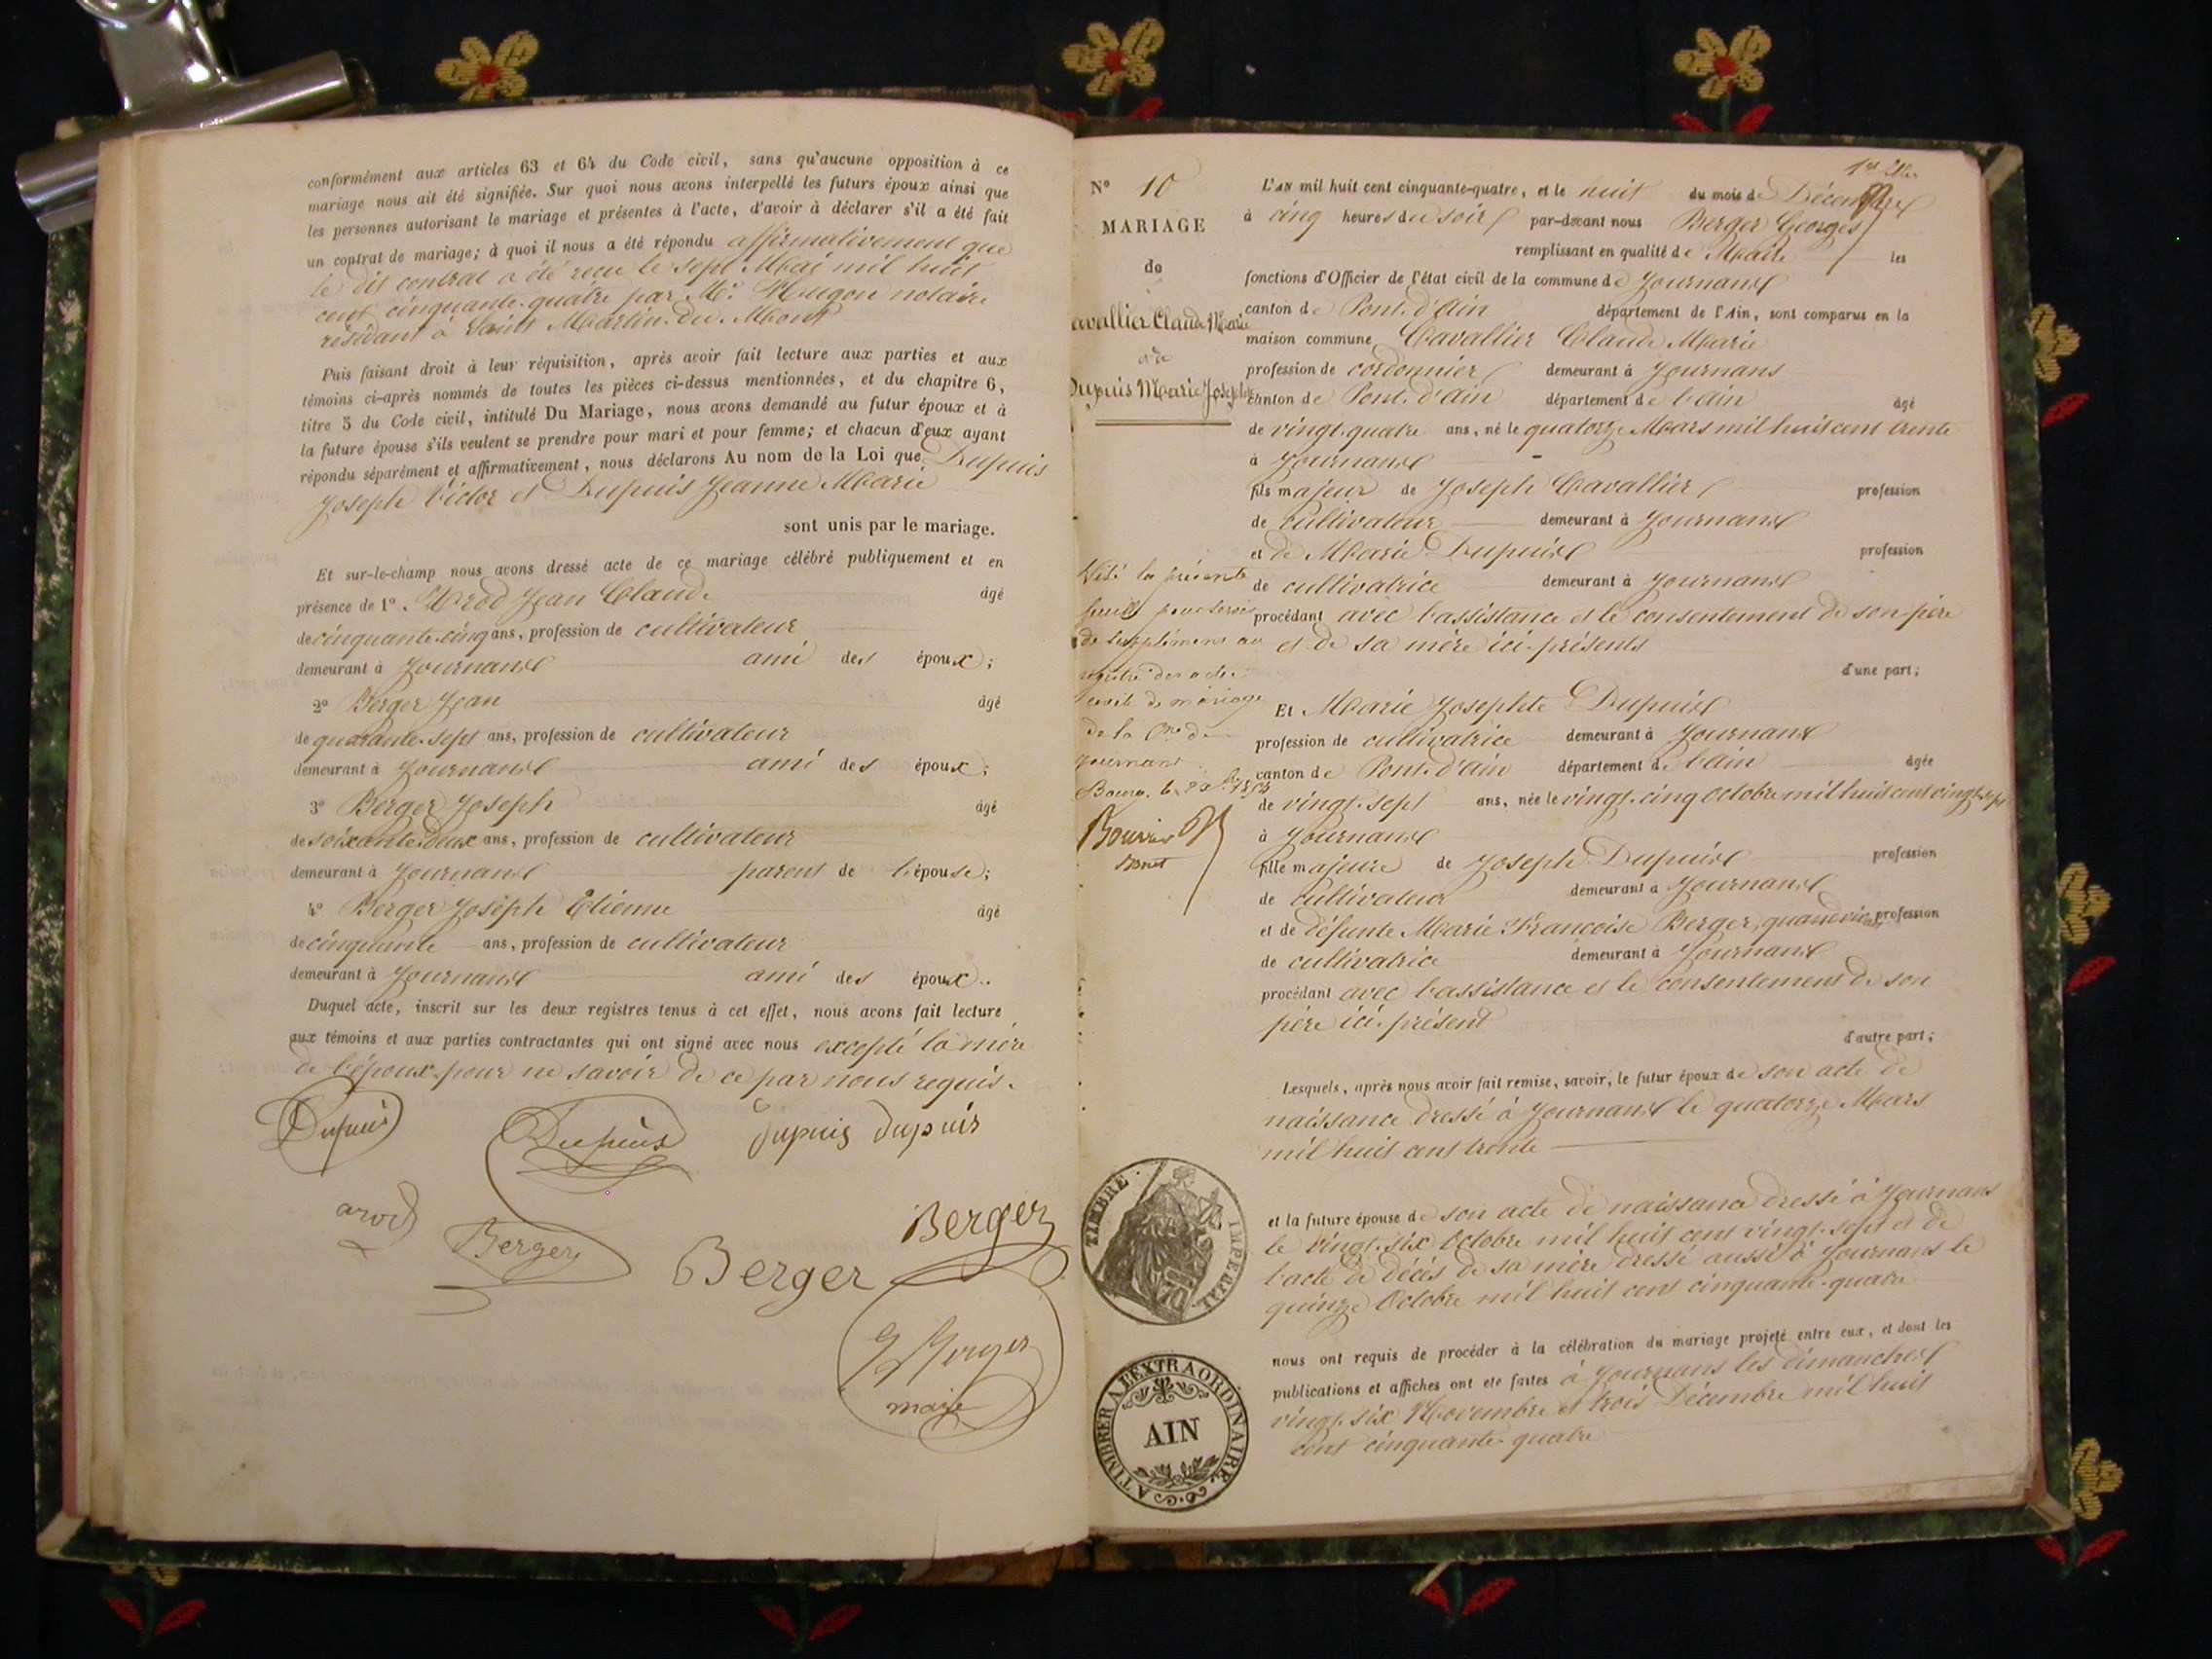 conformément aux articles 63 et 64 du Code civil, sans qu'aucune opposition à ce
mariage nous ait été signifiée. Sur quoi nous avons interpellé les futurs époux ainsi que
les personnes autorisant le mariage et présentes à l'acte, d'avoir à déclarer s'il a été fait
un contrat de mariage; à quoi il nous a été répondu affirmativement que
le dit contrat a été reçu le sept Mai mil huit
cent cinquante-quatre par Me. Hugon notaire
résidant à Saint Martin. du. Mont
Puis faisant droit à leur réquisition, après avoir fait lecture aux parties et aux
témoins ci-après nommés de toutes les pièces ci-dessus mentionnées, et du chapitre 6,
titre 5 du Code civil, intitulé Du Mariage, nous avons demandé au futur époux et à
la future épouse s'ils veulent se prendre pour mari et pour femme; et chacun d'eux ayant
répondu séparément et affirmativement, nous déclarons Au nom de la Loi que Dupuis
Joseph Victor et Dupuis Jeanne Marie
sont unis par le mariage.
Et sur-le-champ nous avons dressé acte de ce mariage célébré publiquement et en
présence de 1o. Arod Jean Claude âgé
de cinquante-cinq ans, profession de cultivateur
demeurant à Journans ami des époux;
2o Berger Jean âgé
de quarante-sept ans, profession de cultivateur
demeurant à Journans ami des époux;
3o Berger Joseph âgé
de soixante-deux ans, profession de cultivateur
demeurant à Journans parent de l'épouse;
4o Berger Joseph Etienne âgé
de cinquante ans, profession de cultivateur
demeurant à Journans ami des époux..
Duquel acte, inscrit sur les deux registres tenus à cet effet, nous avons fait lecture
aux témoins et aux parties contractantes qui ont signé avec nous excepté la mère
de l'époux pour ne savoir de ce par nous requis.
Dupuis Dupuis dupuis dupuis
arod Berger Berger Berger
G Berger
maire
No 10
MARIAGE
de
Cavallier Claude Marie
et de
Dupuis Marie Josephte
Visé la présente
feuille pour servir
de supplément au
registre des actes
civils de mariage
de la Cne de
Journans
Bourg, le
Bouvier
TIMBRE IMPERIAL
A TIMBRER A L'EXTRAORDINAIRE
AIN
L'AN mil huit cent cinquante-quatre, et le huit du mois de Décembre
à cinq heures du soir par-devant nous Berger Georges
remplissant en qualité de Maire les
fonctions d'Officier de l'état civil de la commune de Journans
canton de Pont. d'Ain département de l'Ain, sont comparus en la
maison commune Cavallier Claude Marie
profession de cordonnier demeurant à Journans
canton de Pont. d'Ain département de l'ain âgé
de vingt-quatre ans, né le quatorze Mars mil huit cent trente
à Journans
fils majeur de Joseph Cavallier profession
de cultivateur demeurant à Journans
et de Marie Dupuis profession
de cultivatrice demeurant à Journans
procédant avec l'assistance et le consentement de son père
et de sa mère ici-présents
d'une part;
Et Marie Josephte Dupuis
profession de cultivatrice demeurant à Journans
canton de Pont. d'ain département de l'ain âgée
de vingt-sept ans, née le vingt-cinq Octobre mil huit cent vingt-sept
à Journans
fille majeure de Joseph Dupuis profession
de cultivateur demeurant à Journans
et de défunte Marie Françoise Berger, quand vivait, profession
de cultivatrice demeurant à Journans
procédant avec l'assistance et le consentement de son
père ici-présent
d'autre part;
Lesquels, après nous avoir fait remise, savoir, le futur époux de son acte de
naissance dressé à Journans le quatorze Mars
mil huit cent trente
et la future épouse de son acte de naissance dressé à Journans
le vingt-six Octobre mil huit cent vingt-sept et de
l'acte de décès de sa mère dressé aussi à Journans le
quinze Octobre mil huit cent cinquante-quatre
nous ont requis de procéder à la célébration du mariage projeté entre eux, et dont les
publications et affiches ont été faites à Journans les dimanches
vingt-six Novembre et trois Décembre mil huit
cent cinquante-quatre